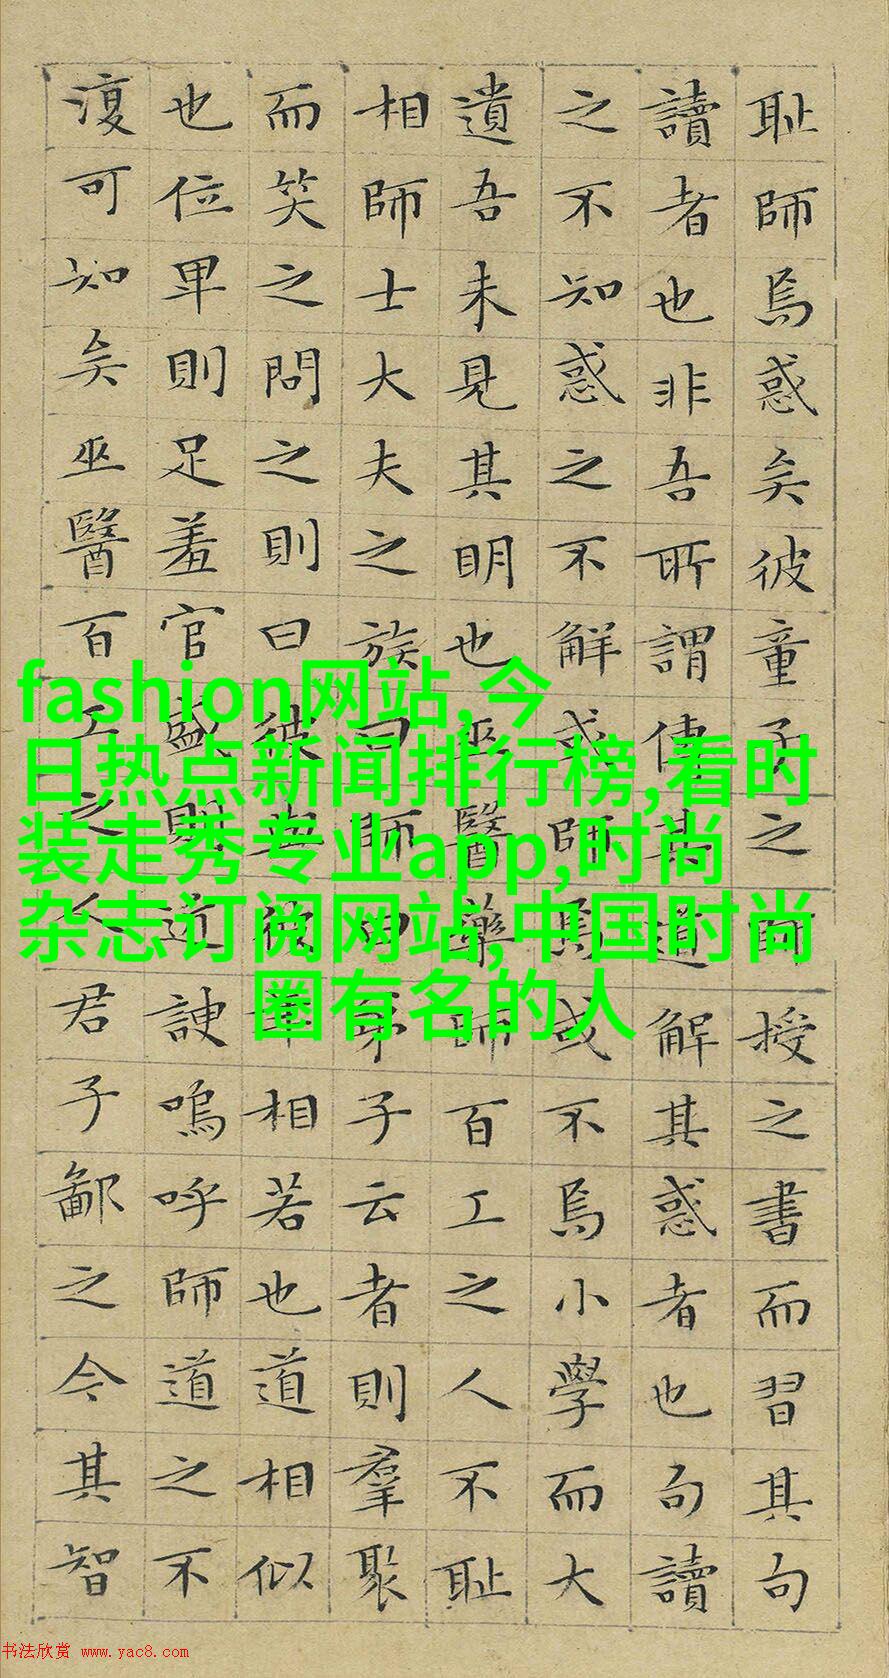 耻師焉惑矣彼童子之師授之書而習其句
讀者也非吾所謂傳其道解其惑者也句讀
之不知惑之不解或師焉或不焉小學而大
遺吾未見其明也巫醫藥師百工之人不耻
相師士大夫之族曰師曰弟子云者則羣聚
而笑之問之則曰彼與彼年相若也道相似
也位卑則足羞官盛則近諛嗚呼師道之不
復可知矣巫醫百工之人君子鄙之今其智
fashion网站,今
日热点新闻排行榜,看时
装走秀专业app,时尚
杂志订阅网站,中国时尚
圈有名的人
书法欣赏 www.yac8.com